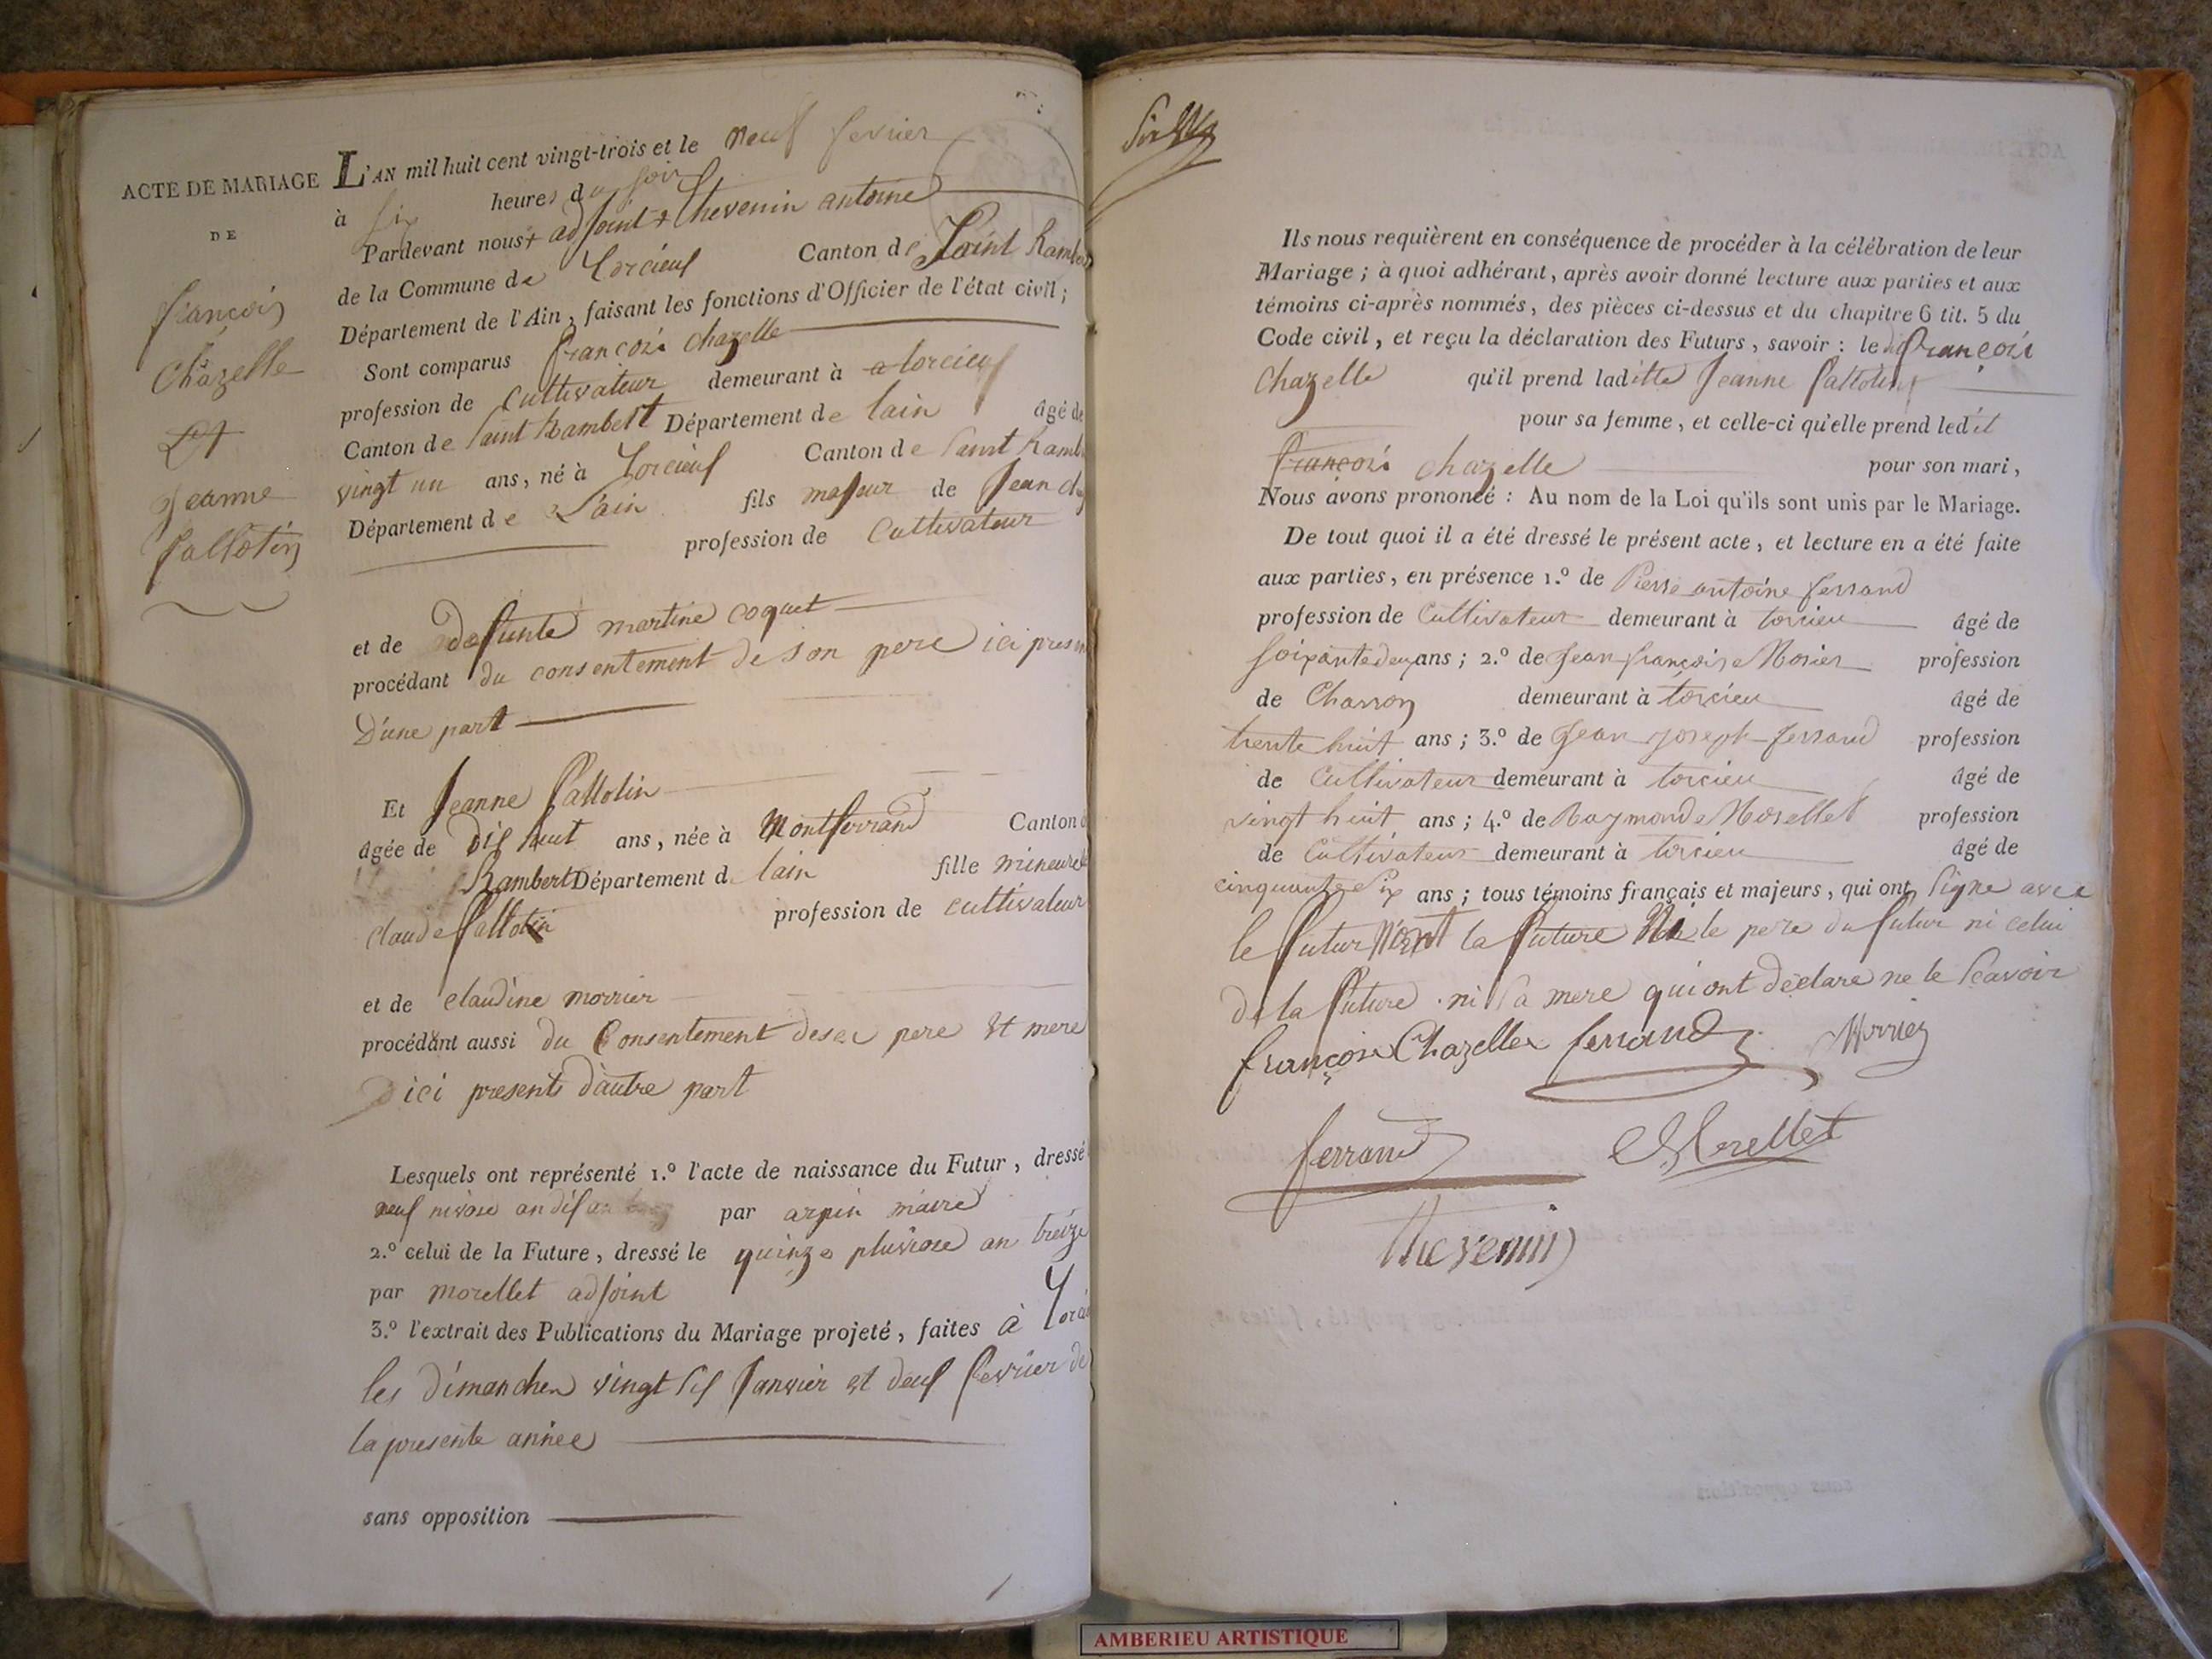 ACTE DE MARIAGE
DE
françois
Chazelle
Et
Jeanne
Pallotin
L'AN mil huit cent vingt-trois et le neuf fevrier
à six heures du soir
Pardevant nous + adjoint + Thevenin antoine
de la Commune de Torcieuf Canton de Saint Rambe
Département de l'Ain, faisant les fonctions d'Officier de l'état civil;
Sont comparus françois chazelle
profession de cultivateur demeurant à a torcieuf
Canton de Saint Rambert Département de lain âgé de
vingt un ans, né à Torcieuf Canton de Saint Ramb
Département de L'ain fils majeur de Jean
profession de Cultivateur
et de defunte martine coquet
procédant du consentement de son pere ici present
D'une part
Et Jeanne Pallotin
âgée de dix huit ans, née à Montferrand Canton
Rambert Département d lain fille mineure
claude Pallotin profession de cultivateur
et de claudine morrier
procédant aussi du Consentement deses pere Et mere
ici presents d'autre part
Lesquels ont représenté 1.º l'acte de naissance du Futur, dressé
neuf nivose an dix par arpin maire
2.º celui de la Future, dressé le quinze pluviose an treize
par morellet adjoint
3.º l'extrait des Publications du Mariage projeté, faites à Torci
les dimanches vingt six Janvier et deux fevrier de
la presente année
sans opposition
Ils nous requièrent en conséquence de procéder à la célébration de leur
Mariage; à quoi adhérant, après avoir donné lecture aux parties et aux
témoins ci-après nommés, des pièces ci-dessus et du chapitre 6 tit. 5 du
Code civil, et reçu la déclaration des Futurs, savoir: le dit françois
chazelle qu'il prend laditte Jeanne Pallotin
pour sa femme, et celle-ci qu'elle prend ledit
françois chazelle pour son mari,
Nous avons prononcé: Au nom de la Loi qu'ils sont unis par le Mariage.
De tout quoi il a été dressé le présent acte, et lecture en a été faite
aux parties, en présence 1.º de Pierre antoine ferrand
profession de Cultivateur demeurant à torcieu âgé de
soixante deux ans; 2.º de Jean françoise Morier profession
de Charron demeurant à torcieu âgé de
trente huit ans; 3.º de Jean joseph ferrand profession
de Cultivateur demeurant à torcieu âgé de
vingt huit ans; 4.º de Raymond Morellet profession
de Cultivateur demeurant à torcieu âgé de
cinquante six ans; tous témoins français et majeurs, qui ont signe avec
le futur Non la future Ni le pere du futur ni celui
de la future ni sa mere qui ont déclare ne le scavoir
françois Chazelle ferrand Morrier
ferrand Morellet
Thevenin
AMBERIEU ARTISTIQUE